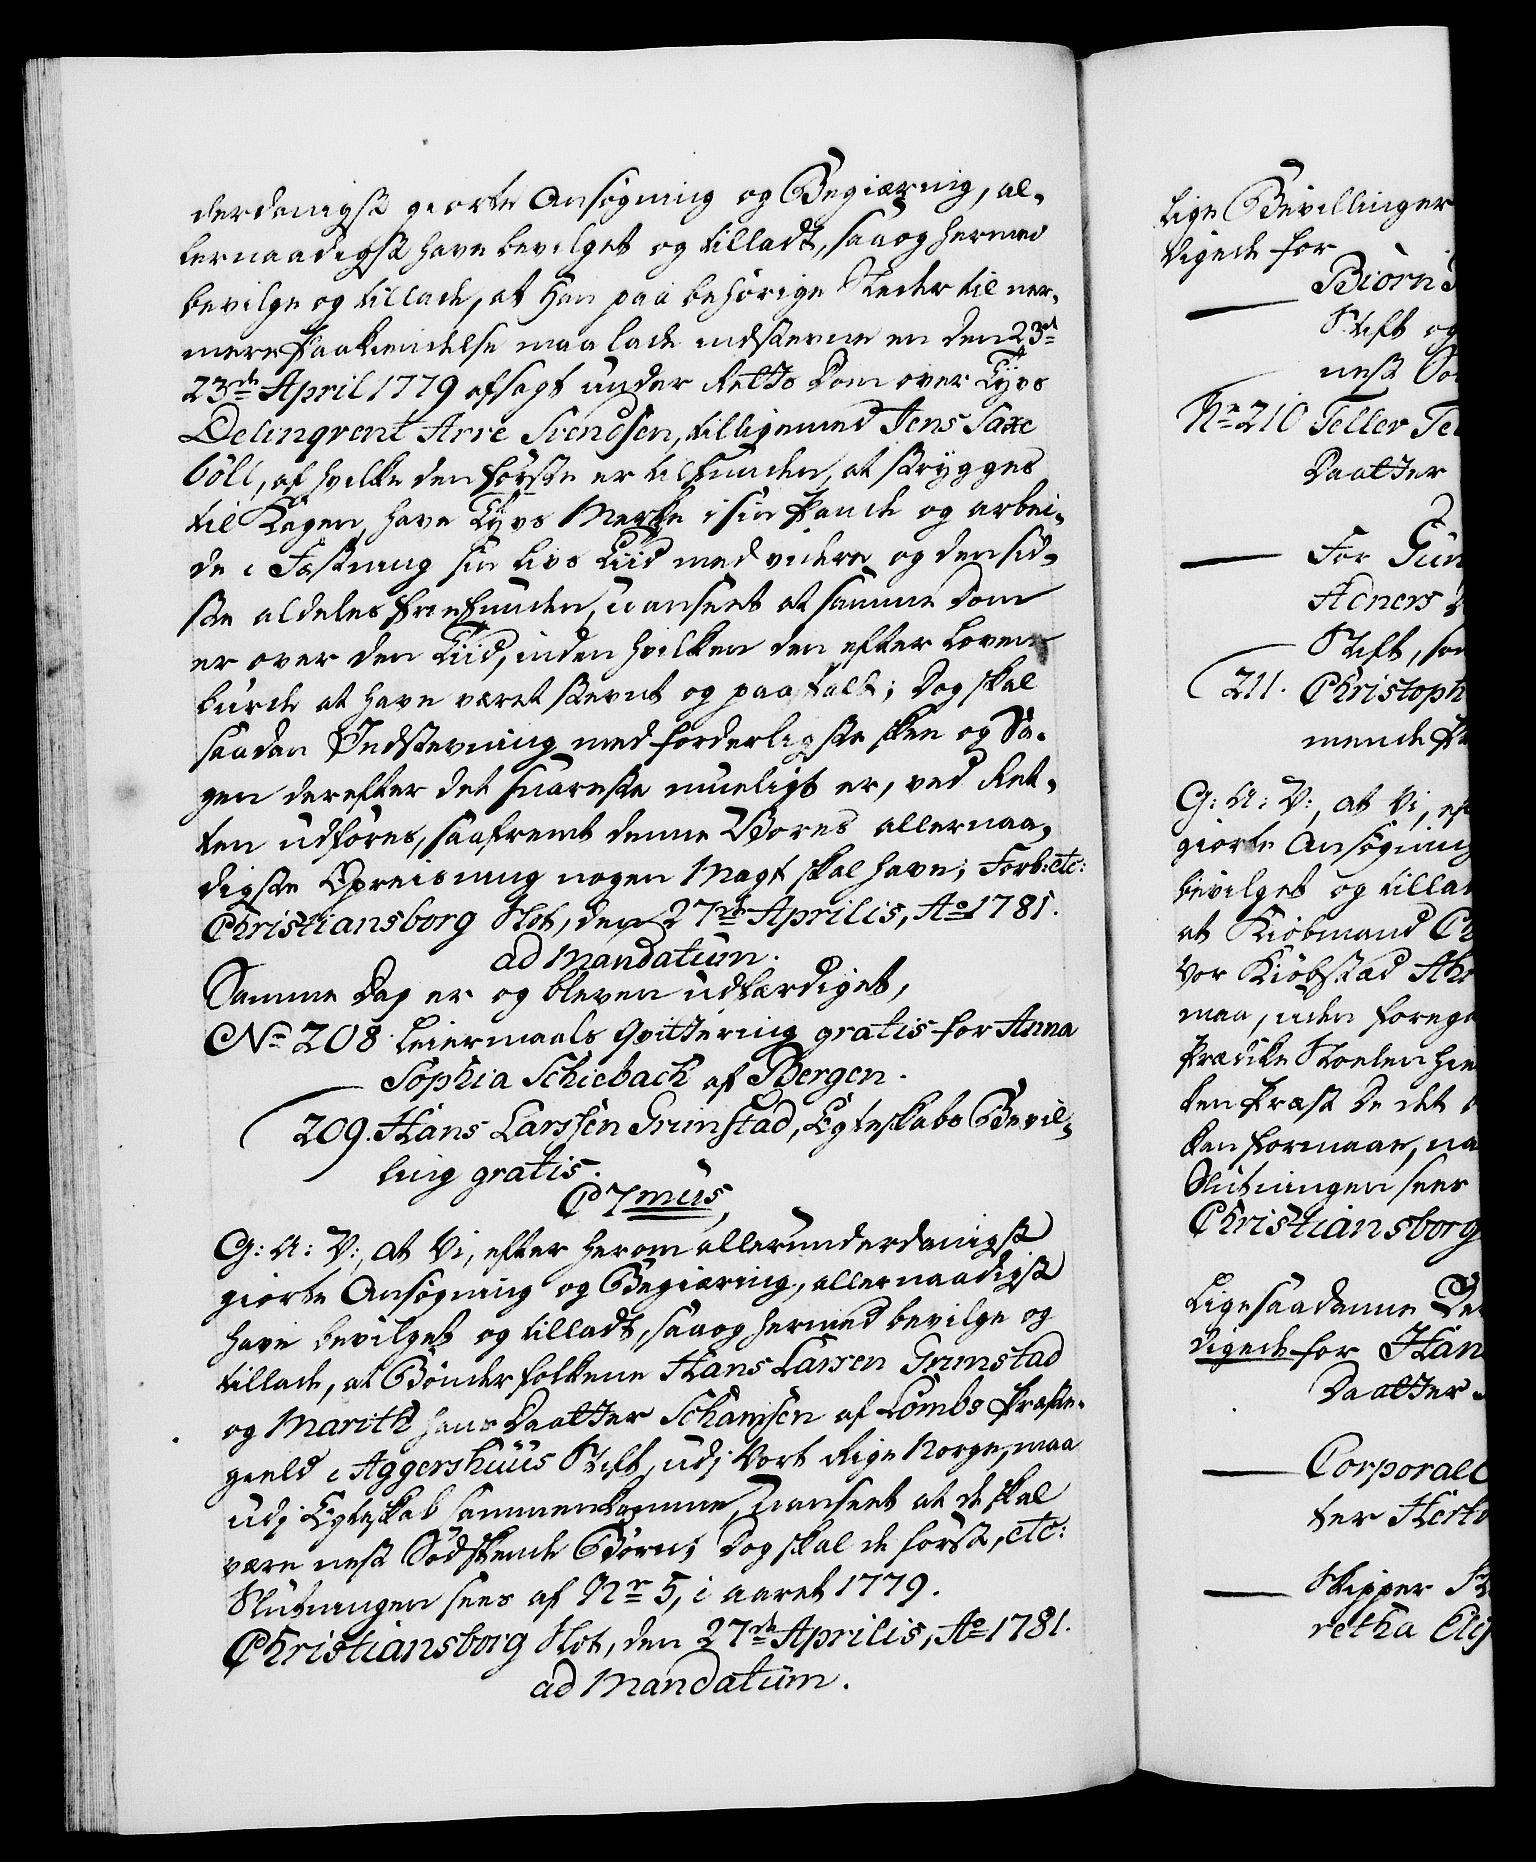 derdanigst giorte Ansøgning og Begiæring, al-
lernaadigst have bevilget og tilladt, saa og hermed
bevilge og tillade, at han paa behørige Steder til nær-
mere Paakiendelse maa lade indstevne en den 23de
23de April 1779 afsagt under Retts Dom over Tyvs
Delinqvent Arre Svendsen, tilligemed Jens Saxe
böll, af hvilke den første er tilfunden, at strygges
til Kagen, have Tyvs Merke i sin Pande og arbei-
de i Fæstning sin Livs Tiid med videre og den sid-
ste aldeles friefunden, uanseet at samme Dom
er over den Tiid, inden hvilken den efter Loven
burde at have været stevnt og paatalt; dog skal
saadan Indstevning med forderligste skee og Sa-
gen derefter det snareste mueligt er, ved Ret-
ten udføres, saafremt denne Vores allernaa-
digste Opreisning nogen Magt skal have; Forb: etc:
Christiansborg Slot, den 27de Aprilis, Ao 1781.
ad Mandatum.
Samme Dag er og bleven udfærdiget,
No 208 Leiermaals Qvittering gratis for Anna
Sophia Schiebach af Bergen.
209. Hans Larssen Grimstad, Egteskabs Bevil-
ling gratis.
C 7mus,
G: A: V:, at Vi, efter herom allerunderdanigst
giorte Ansøgning og Begiæring, allernaadigst
have bevilget og tilladt, saa og hermed bevilge og
tillade, at Bønderfolkene Hans Larsen Grimstad
og Marith hans Daatter Schamsen af Lombs Præste-
gield i Aggershuus Stift udj Vort Rige Norge, maa
udj Egteskab sammenkomme, uanseet at de skal
være nest Sødskende Børn; Dog skal de først, etc:
Slutningen sees af Nr 5, i aaret 1779.
Christiansborg Slot, den 27de Aprilis, Ao 1781.
ad Mandatum.
lige Bevillinger
digede for
Biörn
Stift og
nest
No 210 Teller
Daatter
For
Stift,
211. Christoph
mende
G: A: V:, at Vi,
giorte Ansøgning
bevilget og
at Kiøbmand
Vor Kiøbstad
maa, uden
Prædike Stoelen
ken Præst De det
kan formaae,
Slutningen sees
Christiansborg
Ligesaadanne
digede for
Daatter
Corporal
ter
Skipper
retha